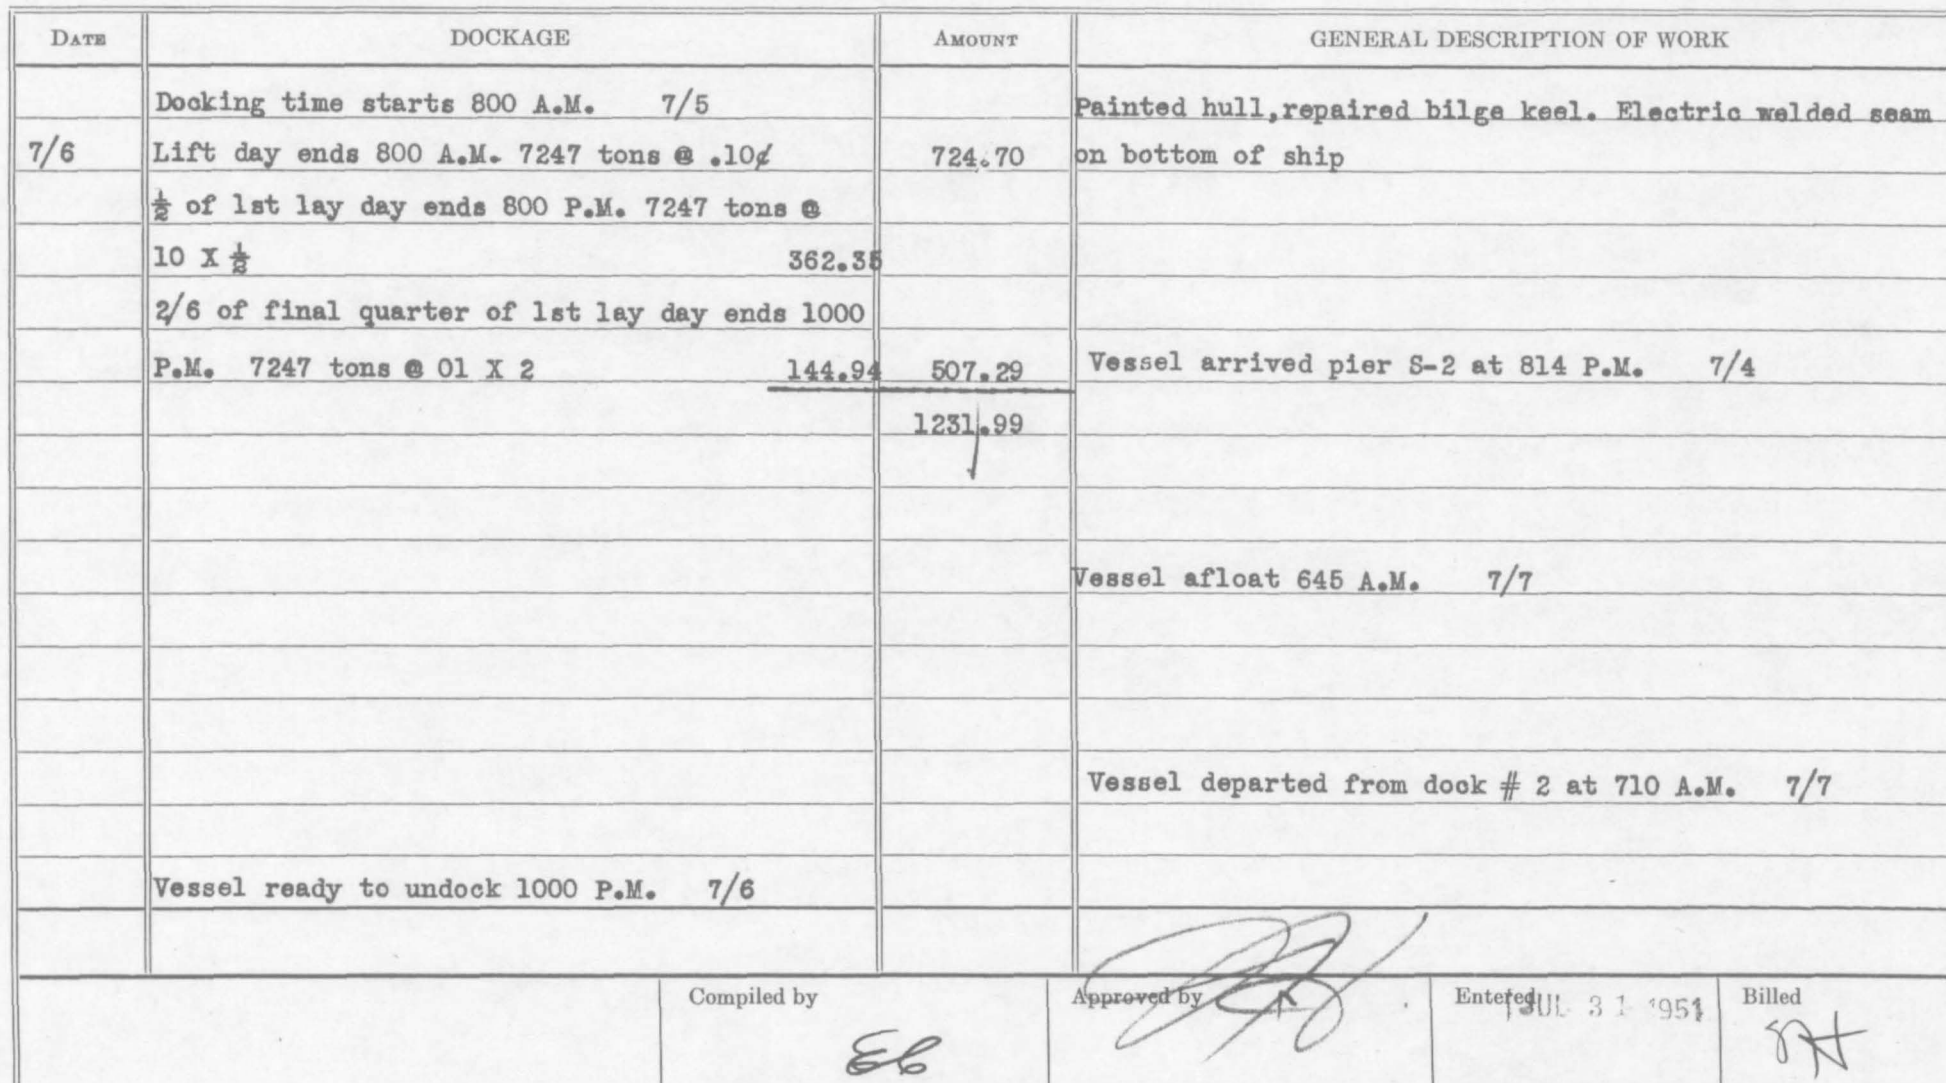 DATE DOCKAGE AMOUNT GENERAL DESCRIPTION OF WORK
Docking time starts 800 A.M. 7/5 Painted hull,repaired bilge keel. Electric welded seam
7/6 Lift day ends 800 A.M. 7247 tons @ .10¢ 724.70 on bottom of ship
½ of 1st lay day ends 800 P.M. 7247 tons @
10 X ½ 362.35
2/6 of final quarter of 1st lay day ends 1000
P.M. 7247 tons @ 01 X 2 144.94 507.29 Vessel arrived pier S-2 at 814 P.M. 7/4
1231.99
Vessel afloat 645 A.M. 7/7
Vessel departed from dock # 2 at 710 A.M. 7/7
Vessel ready to undock 1000 P.M. 7/6
Compiled by Approved by Entered JUL 31 1951 Billed